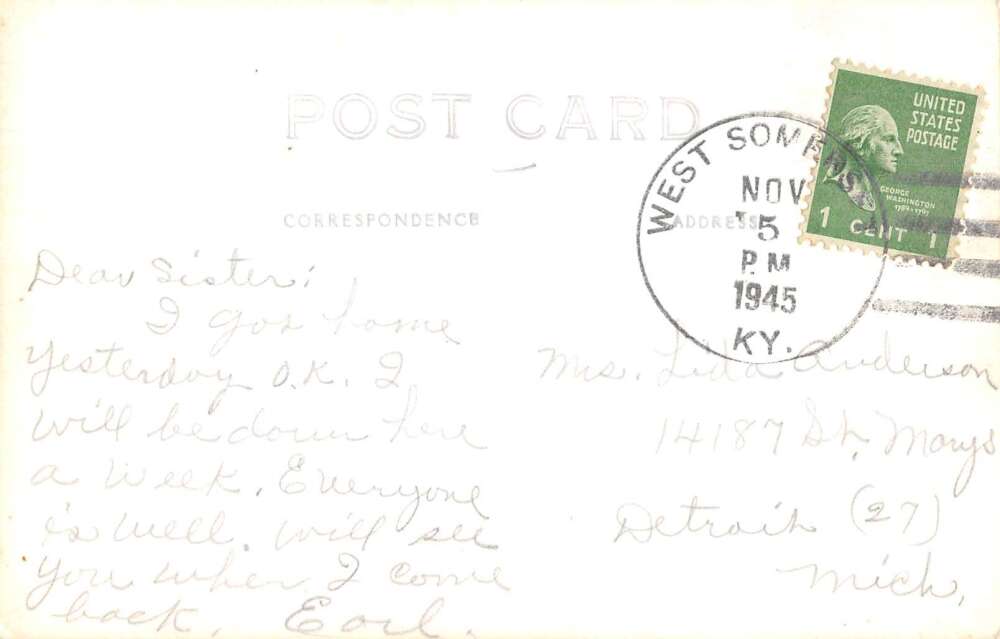 POST CARD
CORRESPONDENCE
ADDRESS
UNITED
STATES
POSTAGE
GEORGE
WASHINGTON
1789-1797
1 CENT 1
WEST SOMERS
NOV
5
P.M
1945
KY.
Dear Sister:
I got home
yesterday O.K. I
will be down here
a week. Everyone
is well. will see
you when I come
back. Earl.
Mrs. Lida Anderson
14187 St. Marys
Detroit (27)
Mich.